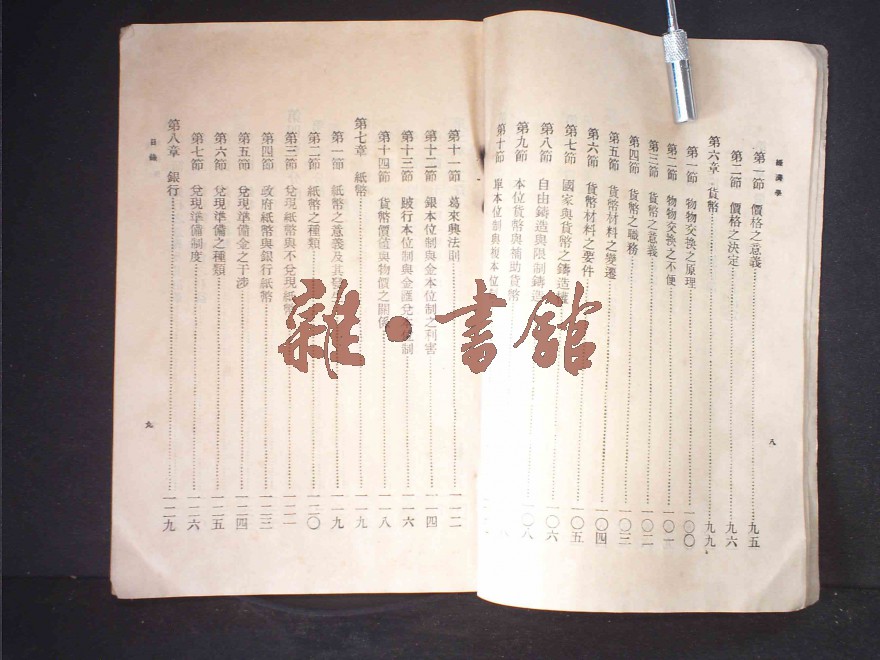 經濟學
第一節 價格之意義 九五
第二節 價格之決定 九六
第六章 貨幣 九九
第一節 物物交換之原理 一〇〇
第二節 物物交換之不便 一〇一
第三節 貨幣之意義 一〇二
第四節 貨幣之職務 一〇三
第五節 貨幣材料之變遷
第六節 貨幣材料之要件 一〇四
第七節 國家與貨幣之鑄造權 一〇五
第八節 自由鑄造與限制鑄造 一〇六
第九節 本位貨幣與補助貨幣 一〇八
第十節 單本位制與複本位制
八
第十一節 葛來興法則 一一二
第十二節 銀本位制與金本位制之利害 一一四
第十三節 跛行本位制與金匯兌本位制 一一六
第十四節 貨幣價值與物價之關係 一一八
第七章 紙幣 一一九
第一節 紙幣之意義及其發 一一九
第二節 紙幣之種類 一二〇
第三節 兌現紙幣與不兌現紙幣 一二一
第四節 政府紙幣與銀行紙幣 一二三
第五節 兌現準備金之干涉 一二四
第六節 兌現準備之種類 一二五
第七節 兌現準備制度 一二六
第八章 銀行 一二九
目錄
九
雜·書館